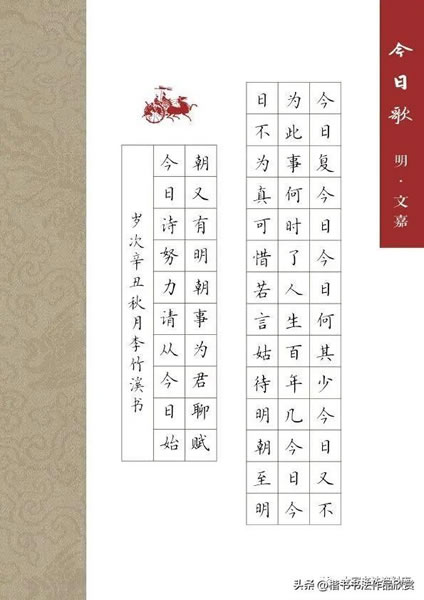 今日歌 明·文嘉
今日复今日今日何其少今日又不
为此事何时了人生百年几今日今
日不为真可惜若言姑待明朝至明
朝又有明朝事为君聊赋
今日诗努力请从今日始
岁次辛丑秋月李竹溪书
头条 @楷书书法作品欣赏